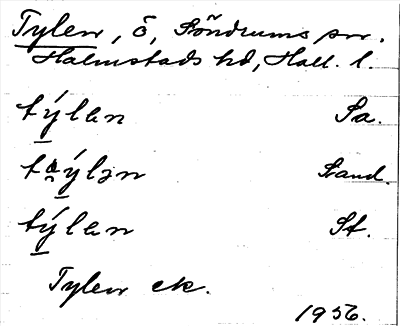 Tylen, ö, Söndrums sn.
Halmstads hd, Hall. l.
týlan Sa.
týlən Sand.
týlan St.
Tylen ek.
1956.